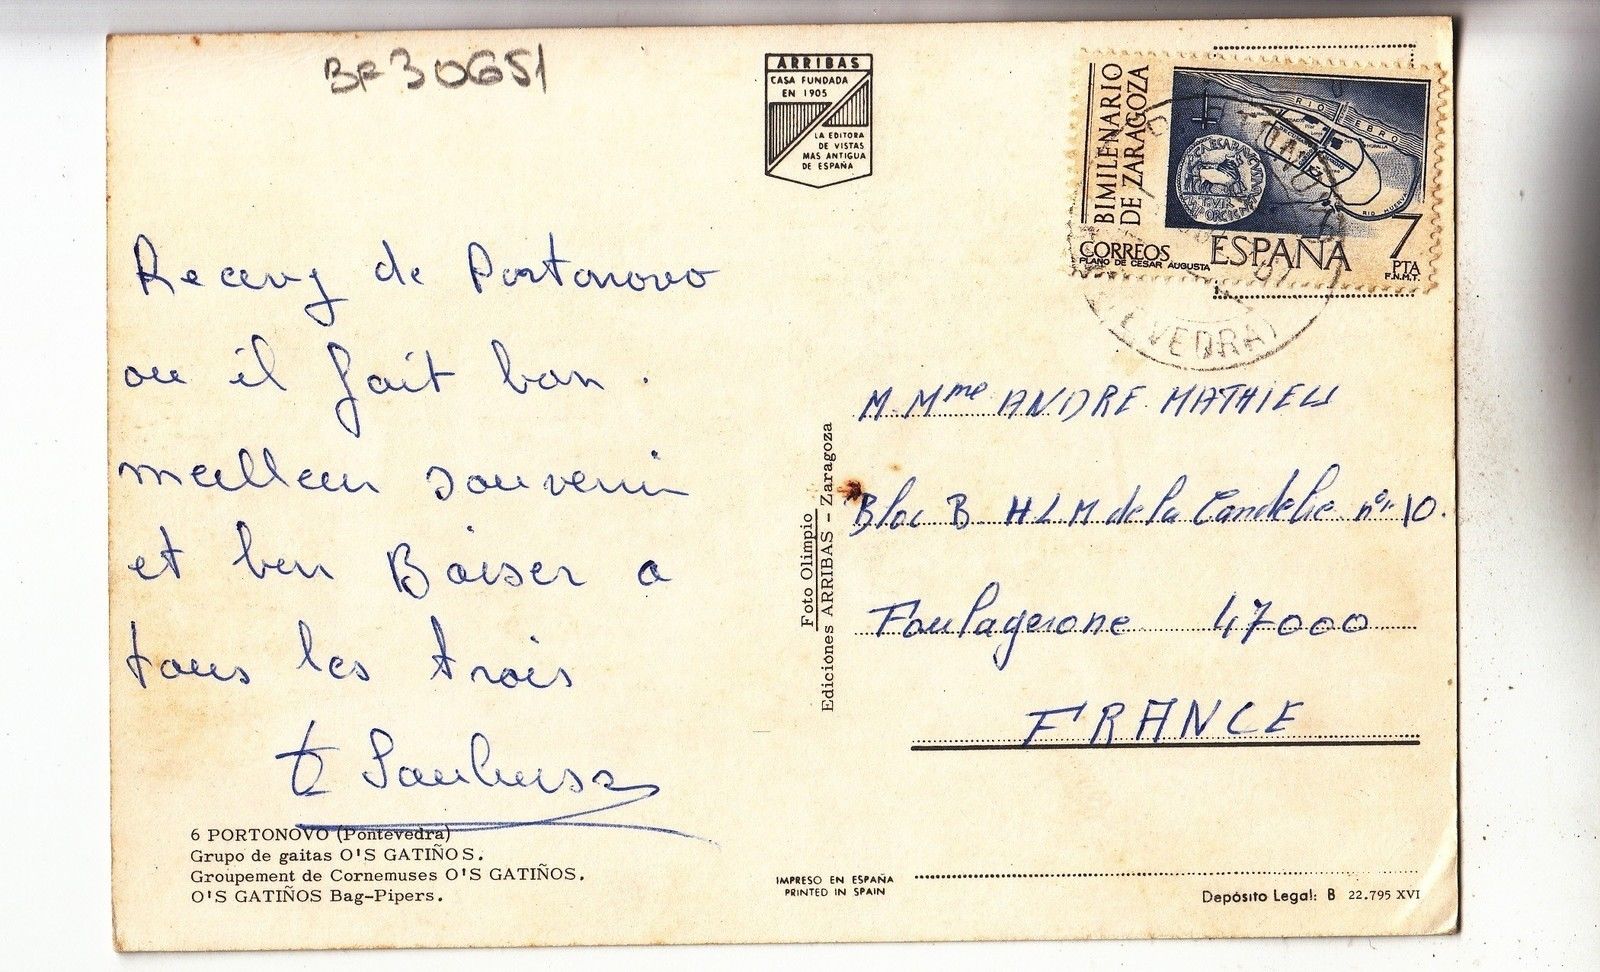 BF30651
ARRIBAS
CASA FUNDADA
EN 1905
LA EDITORA
DE VISTAS
MAS ANTIGUA
DE ESPAÑA
BIMILENARIO
DE ZARAGOZA
RIO EBRO
RIO HUERVA
CORREOS
PLANO DE CESAR AUGUSTA
ESPAÑA
7
PTA
F.N.M.T.
VEDRA)
Recevez de Portonovo
ou il fait bon.
meilleur souvenir
et bon Baiser a
tous les trois
6 PORTONOVO (Pontevedra)
Grupo de gaitas O'S GATIÑOS.
Groupement de Cornemuses O'S GATIÑOS.
O'S GATIÑOS Bag-Pipers.
Foto Olimpio
Ediciónes ARRIBAS - Zaragoza
M. Mme ANDRE MATHIEU
Bloc B HLM de la Candelie no 10.
Foulayronne 47000
FRANCE
IMPRESO EN ESPAÑA
PRINTED IN SPAIN
Depósito Legal: B 22.795 XVI